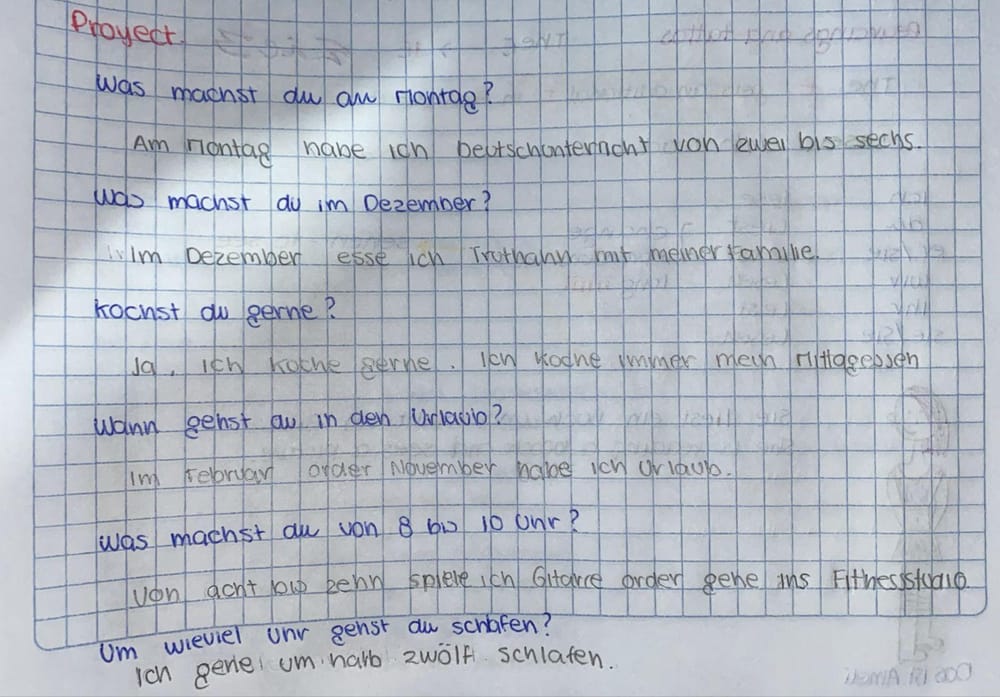 Proyect.
Was machst du am Montag?
Am Montag habe ich Deutschunterricht von zwei bis sechs.
Was machst du im Dezember?
Im Dezember esse ich Truthahn mit meiner Familie.
Kochst du gerne?
Ja, ich koche gerne. Ich koche immer mein Mittagessen
Wann gehst du in den Urlaub?
Im Februar order November habe ich Urlaub.
Was machst du von 8 bis 10 Uhr?
Von acht bis zehn spiele ich Gitarre order gehe ins Fitnessstudio
Um wieviel Uhr gehst du schlafen?
Ich gehe um halb zwölf schlafen.